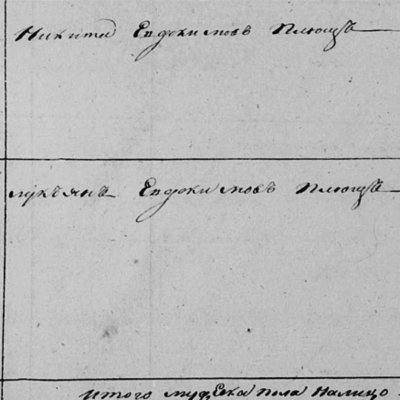 Никита Евдокимовъ Плющъ
Лукъянъ Евдокимовъ Плющъ
Итого муж. пола Налицо